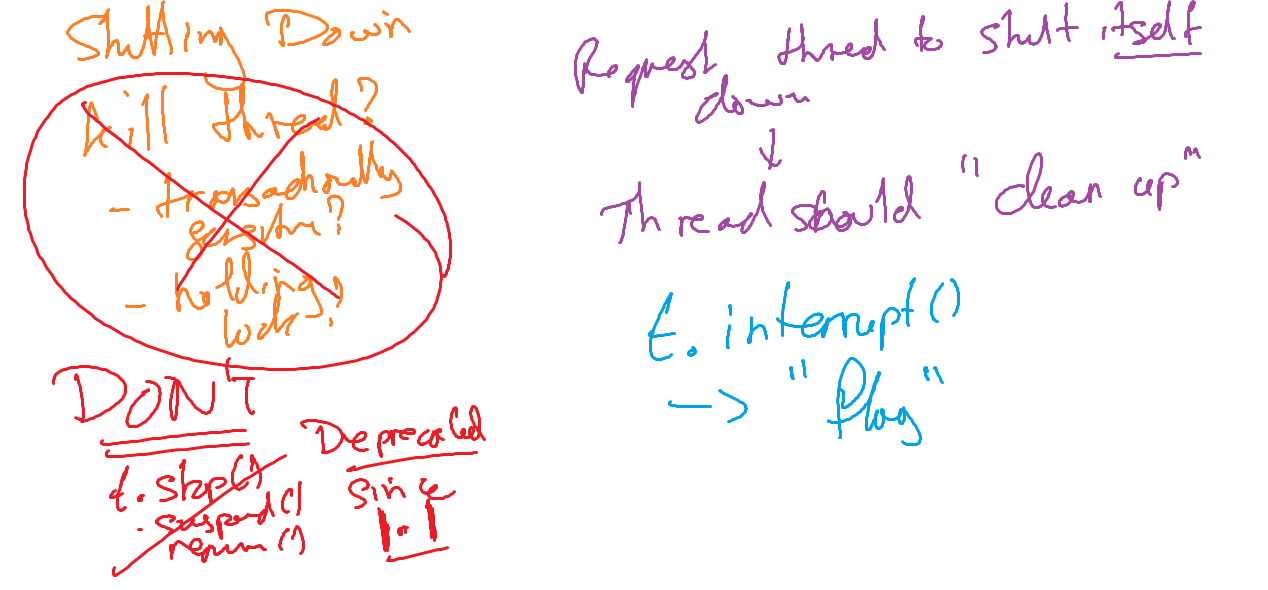 Shutting Down
kill thread?
- transactionally
sensitive?
- holding
lock?
DON'T
t. stop()
. suspend()
resume()
Deprecated
since
1.1
Request thred to shut itself
down
↓
Thread should "clean up"
t. interrupt()
→ "flag"